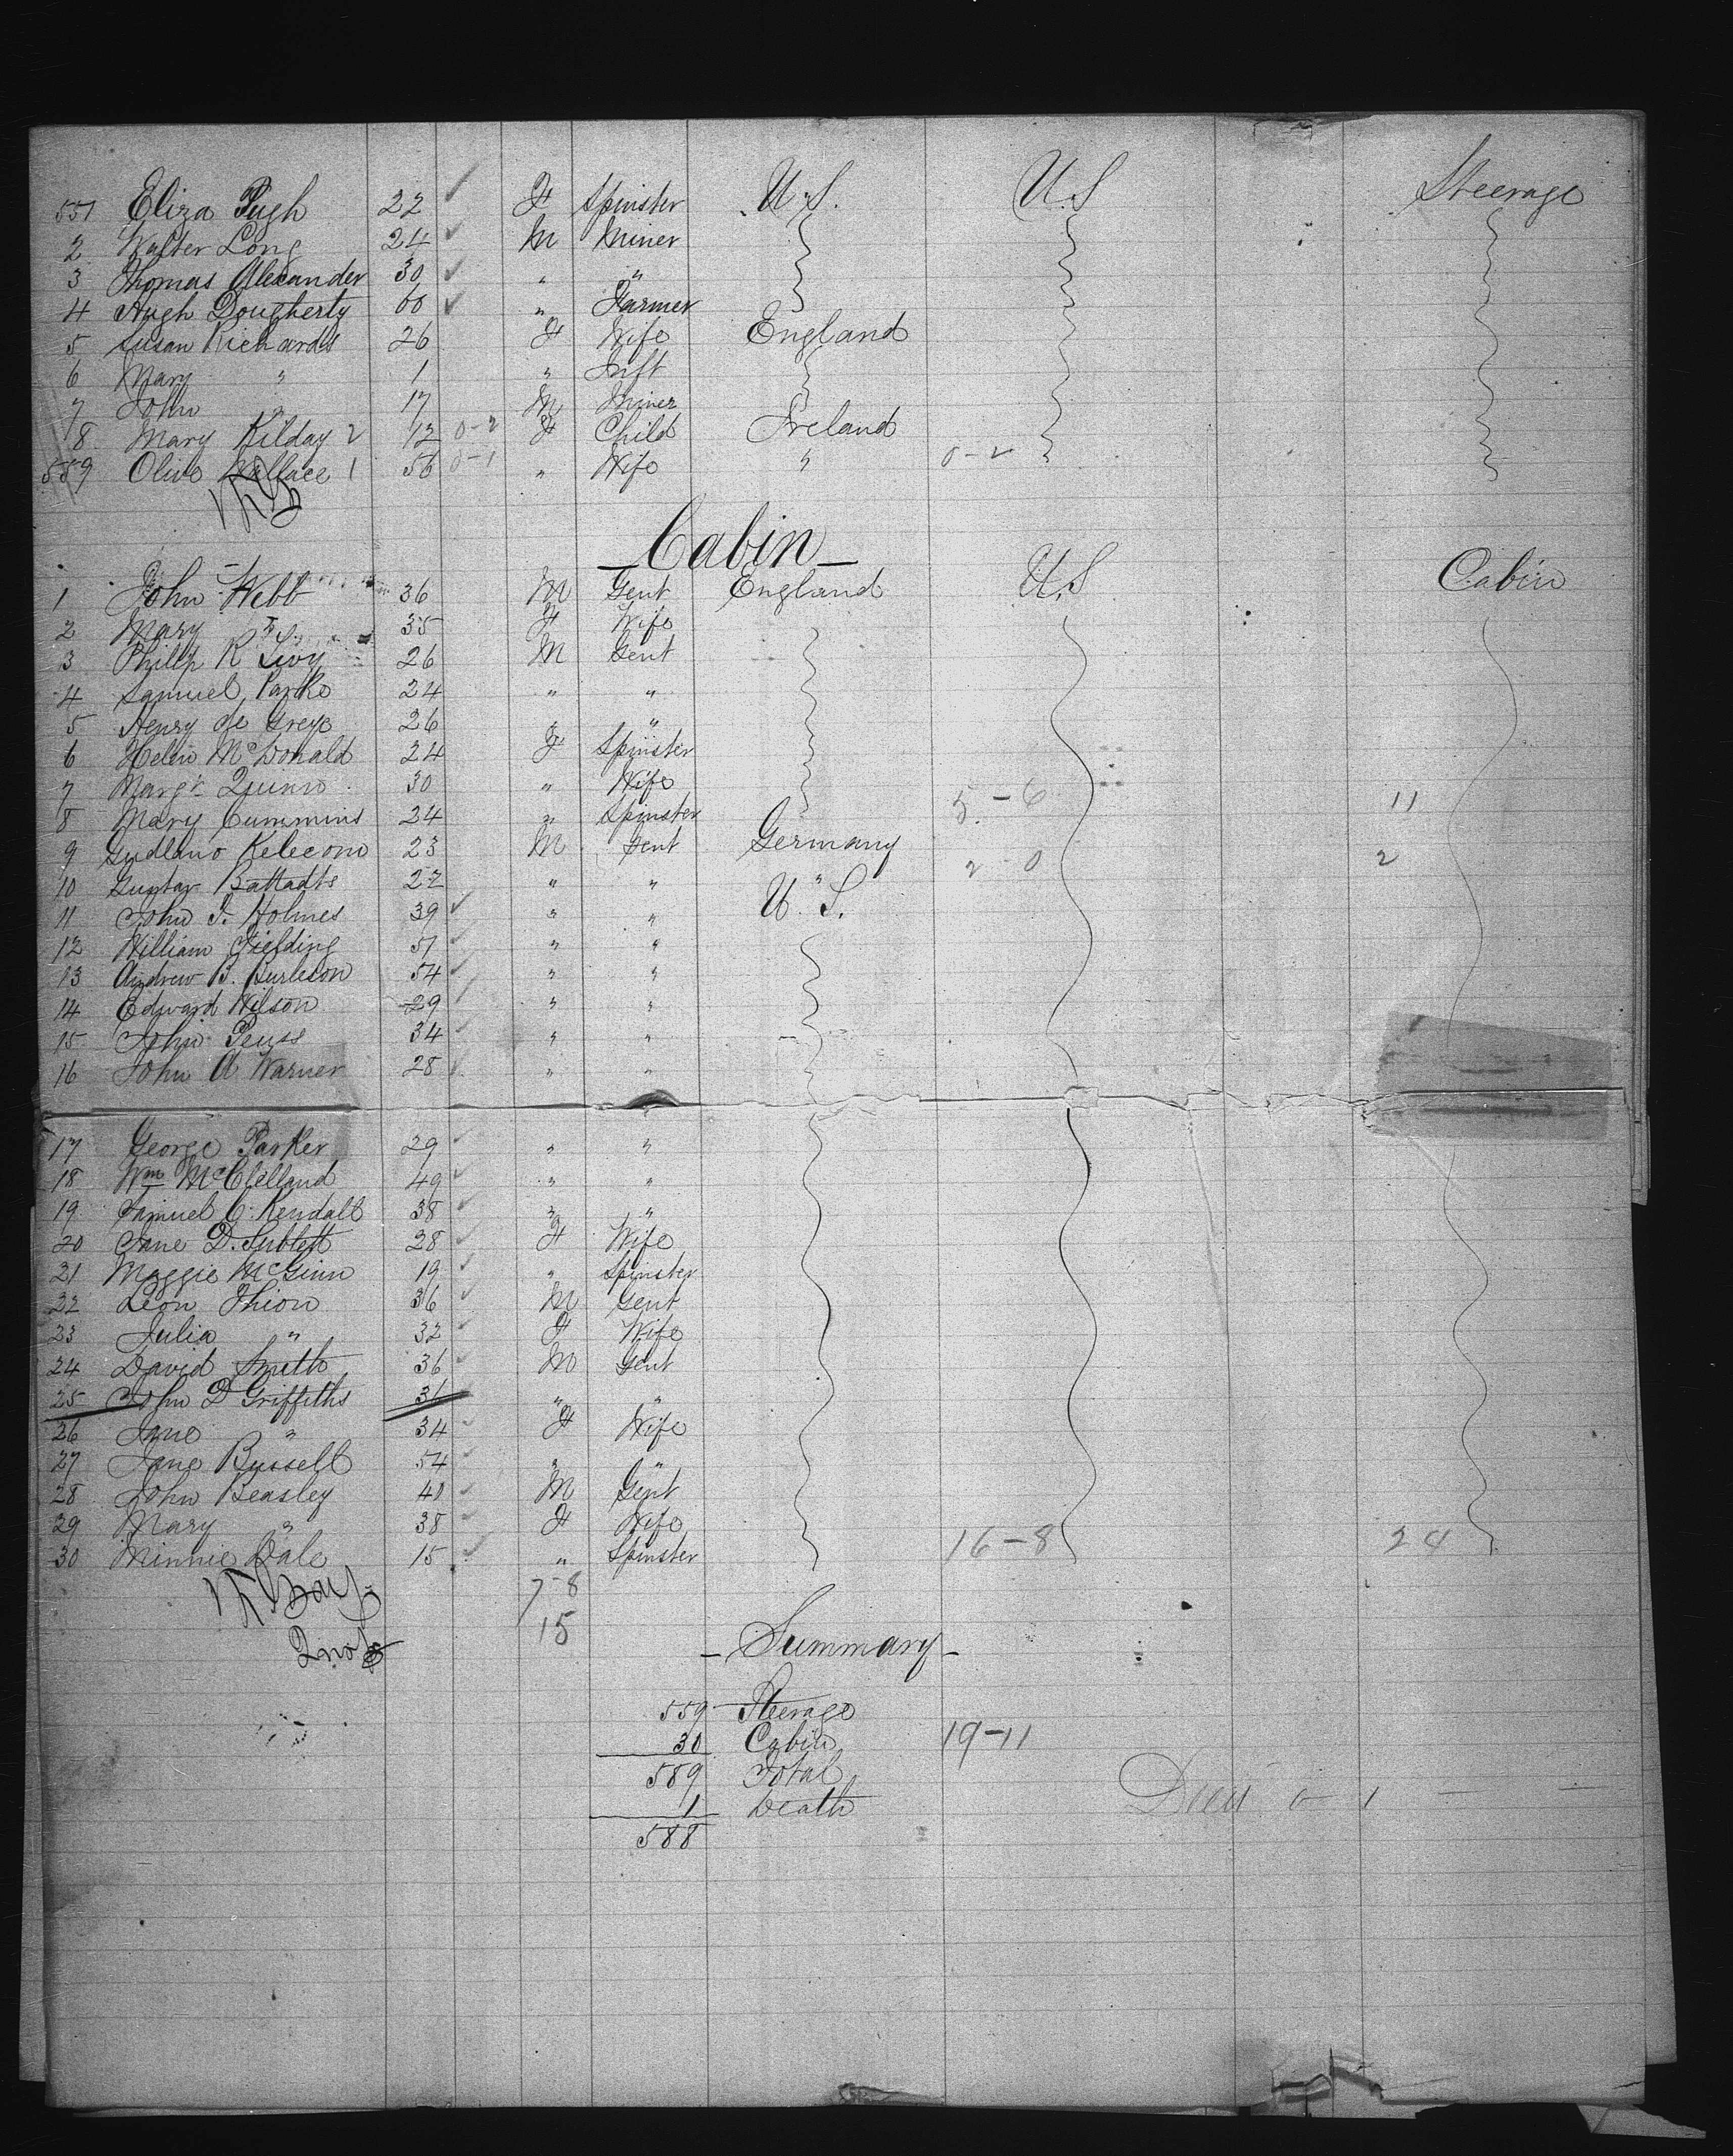 551 Eliza Pugh 22 ✓ F Spinster U.S. U.S Steerage
2 Walter Long 24 ✓ M Miner
3 Thomas Alexander 30 ✓ " "
4 Hugh Dougherty 60 ✓ " Farmer
5 Susan Richards 26 F Wife England
6 Mary " 1 " Inft
7 John " 17 M Miner
8 Mary Kilday 2 12 0-2 F Child Ireland
559 Olive Wallace 1 56 0-1 " Wife " 0-2
Cabin
1 John Webb 36 M Gent England U.S Cabin
2 Mary " 35 F Wife
3 Philip R Livy 26 M Gent
4 Samuel Parke 24 " "
5 Henry de Greye 26 " "
6 Helen McDonald 24 F Spinster
7 Margt Quinn 30 " Wife
8 Mary Cummins 24 " Spinster 5-6 11
9 23 M Gent Germany
10 Gustav 22 " " " 2 0 2
11 John F. Holmes 39 ✓ " " U.S.
12 William Fielding 51 ✓ " "
13 Andrew B. Burleson 54 ✓ " "
14 Edward Wilson 29 ✓ " "
15 John 34 ✓ " "
16 John A Warner 28 ✓ " "
17 George Parker 29 ✓ " "
18 Wm McClelland 49 ✓ " "
19 Samuel C. Kendall 38 ✓ " "
20 Jane D. Sublett 28 ✓ F Wife
21 Maggie McGinn 19 ✓ " Spinster
22 Leon Thion 36 ✓ M Gent
23 Julia " 32 ✓ F Wife
24 David Smith 36 ✓ M Gent
25 John D Griffiths 31 " "
26 Jane " 34 ✓ F Wife
27 Jane Bussell 54 ✓ " "
28 John Beasley 41 ✓ M Gent
29 Mary " 38 ✓ F Wife
30 Minnie Dale 15 ✓ " Spinster 16-8 24
7-8
15
Summary
559 Steerage
30 Cabin 19-11
589 Total
1 Death Died 0 1
588